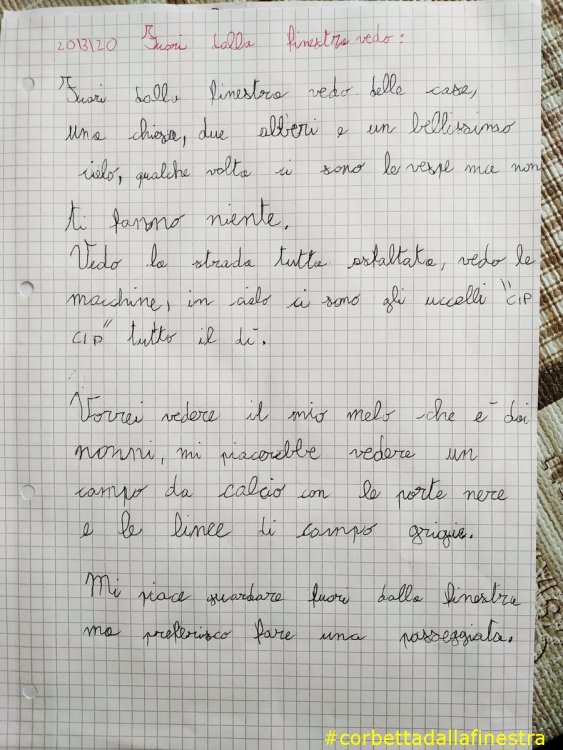 20/3/20 Fuori dalla finestra vedo:
Fuori dalla finestra vedo delle case,
una chiesa, due alberi e un bellissimo
cielo, qualche volta ci sono le vespe ma non
ti fanno niente.
Vedo la strada tutta asfaltata, vedo le
macchine, in cielo ci sono gli uccelli "CIP
CIP" tutto il dì.
Vorrei vedere il mio melo che è dai
nonni, mi piacerebbe vedere un
campo da calcio con le porte nere
e le linee di campo grigie.
Mi piace guardare fuori dalla finestra
ma preferisco fare una passeggiata.
#corbettadallafinestra